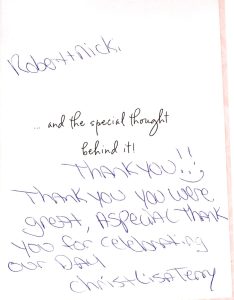 Robert + Nicki
... and the special thought
behind it!
Thank you!!
Thank you you were
great, A special Thank
you for celebrating
our DAY
Chris + Lisa Terry